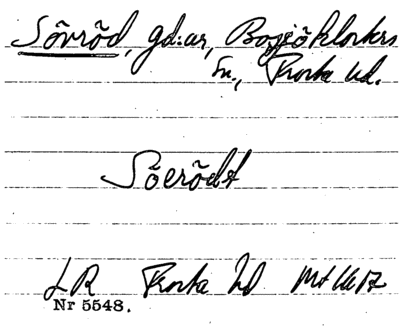 Sõvrõd, gd:ar, Bosjöklosters
sn., Frosta hd.
Söerödt
LR Frosta hd
Nr 5548.